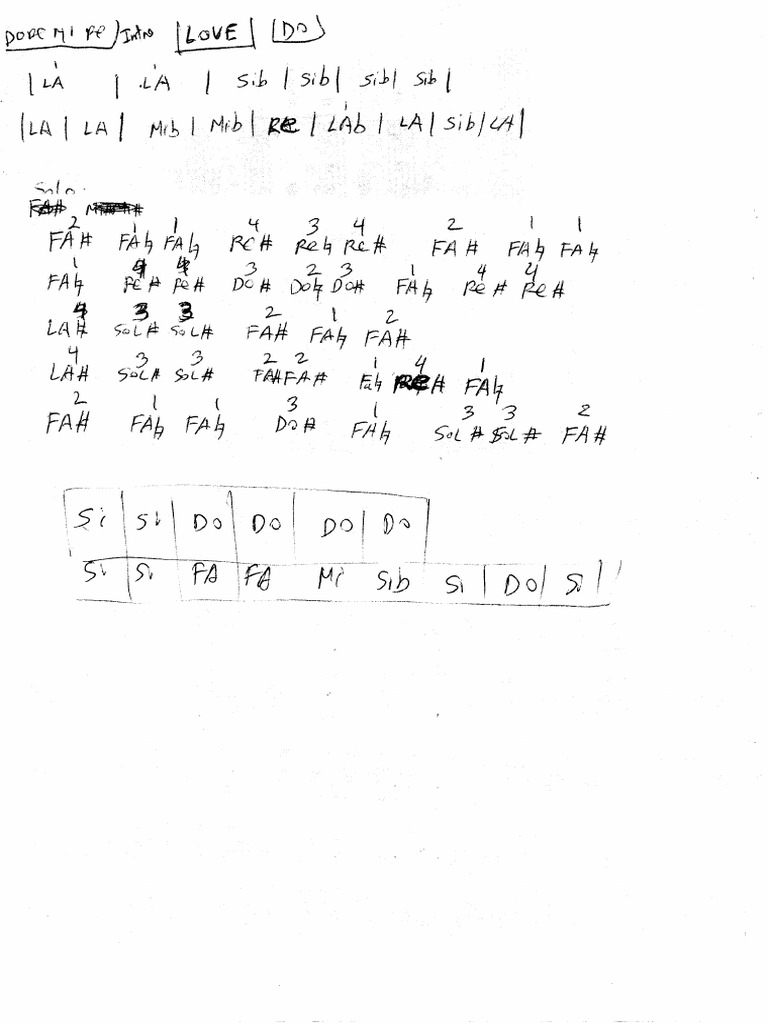 DO RE MI RE / Intro | LOVE | | DO )
| LA | LA | Sib | Sib | Sib | Sib |
| LA | LA | Mib | Mib | RE | LAb | LA | Sib | LA |
Solo
FA#
2 1 1 4 3 4 2 1 1
FA# FA♮ FA♮ RE# RE♮ RE# FA# FA♮ FA♮
1 4 4 3 2 3 1 4 4
FA♮ RE# RE# DO# DO♮ DO# FA♮ RE# RE#
4 3 3 2 1 2
LA# SOL# SOL# FA# FA♮ FA#
4 3 3 2 2 1 4 1
LA# SOL# SOL# FA# FA# FA♮ RE# FA♮
2 1 1 3 1 3 3 2
FA# FA♮ FA♮ DO# FA♮ SOL# SOL# FA#
Si | Si | DO | DO | DO | DO |
Si | Si FA FA Mi Sib Si | DO | Si |